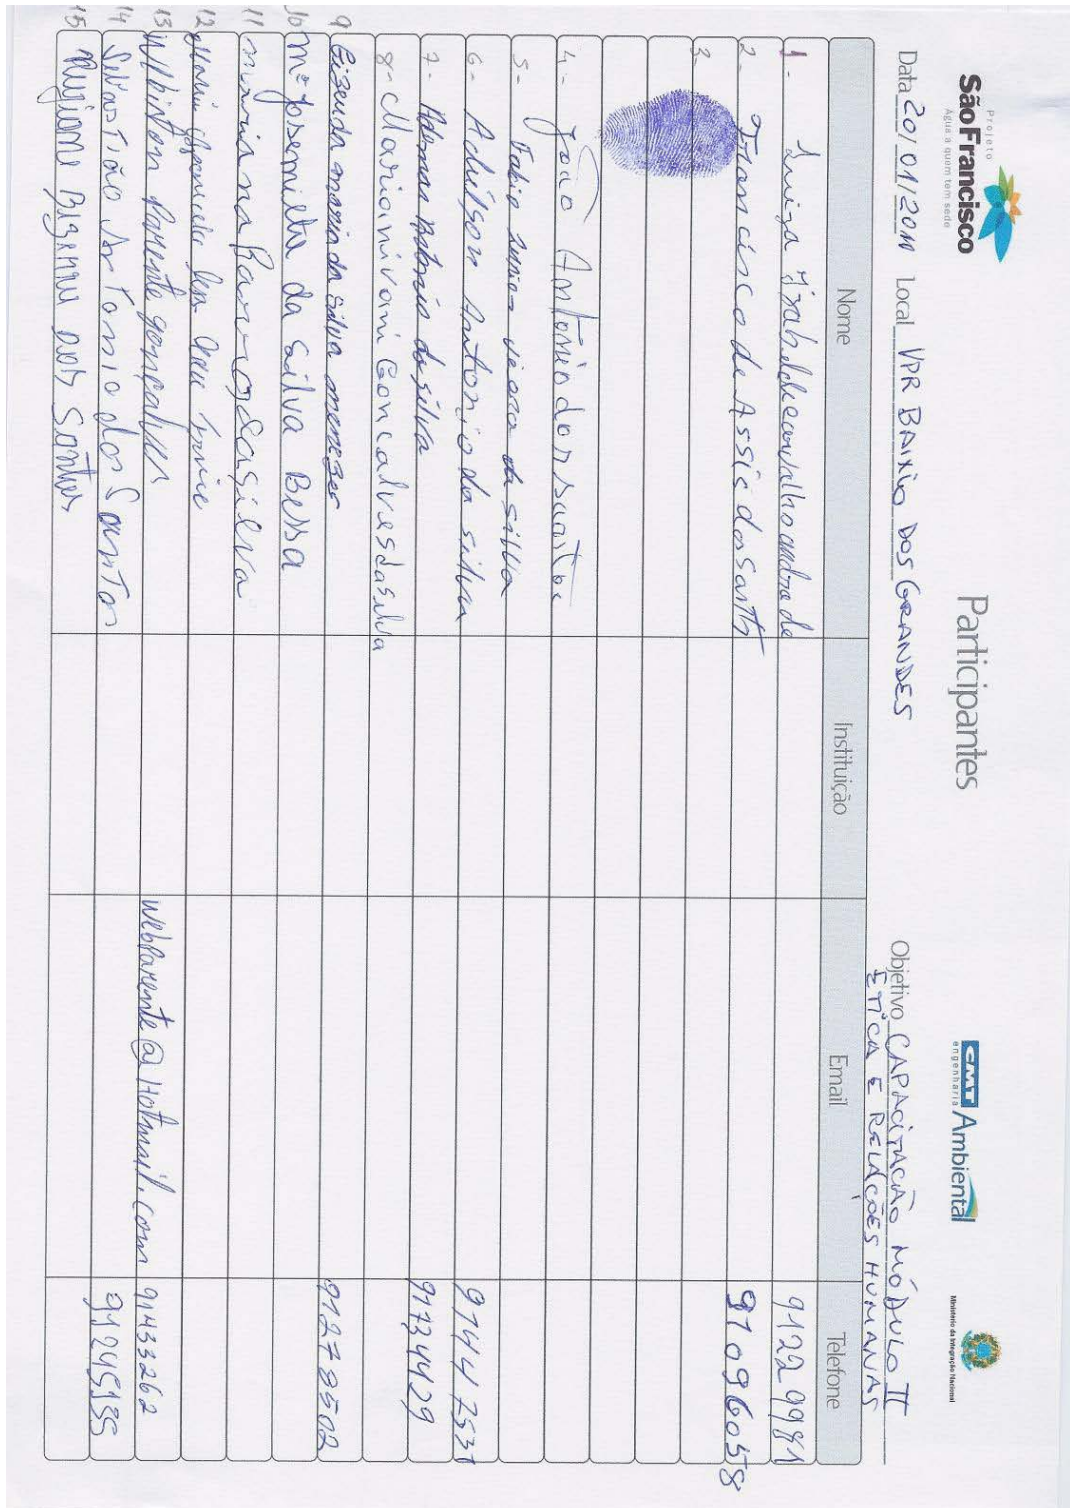 Projeto
São Francisco
Água a quem tem sede
Participantes
CMT Ambiental
engenharia
Ministério da Integração Nacional
Data 20/01/2011 Local VPR BAIXIO DOS GRANDES Objetivo CAPACITAÇÃO MÓDULO II
ETICA E RELAÇÕES HUMANAS
Nome Instituição Email Telefone
1- Luiza Izabel de carvalho andrade 9122 9991
2- Francisco de Assis dos 91096058
3-
4- João Antonio dos
5- Fabio Junior da silva
6- Aduilson Antonio da silva 91447531
7- da silva 91734429
8- Maria ivani Goncalves da silva
9 maria da silva menezes 91278502
10 Mª Josemilta da Silva Bessa
11 mariana Barros da silva
12 Maria
13 parente gonçalves webparente@Hotmail.com 91433262
14 Sebastião Antonio dos Santos 91245135
15 dos Santos